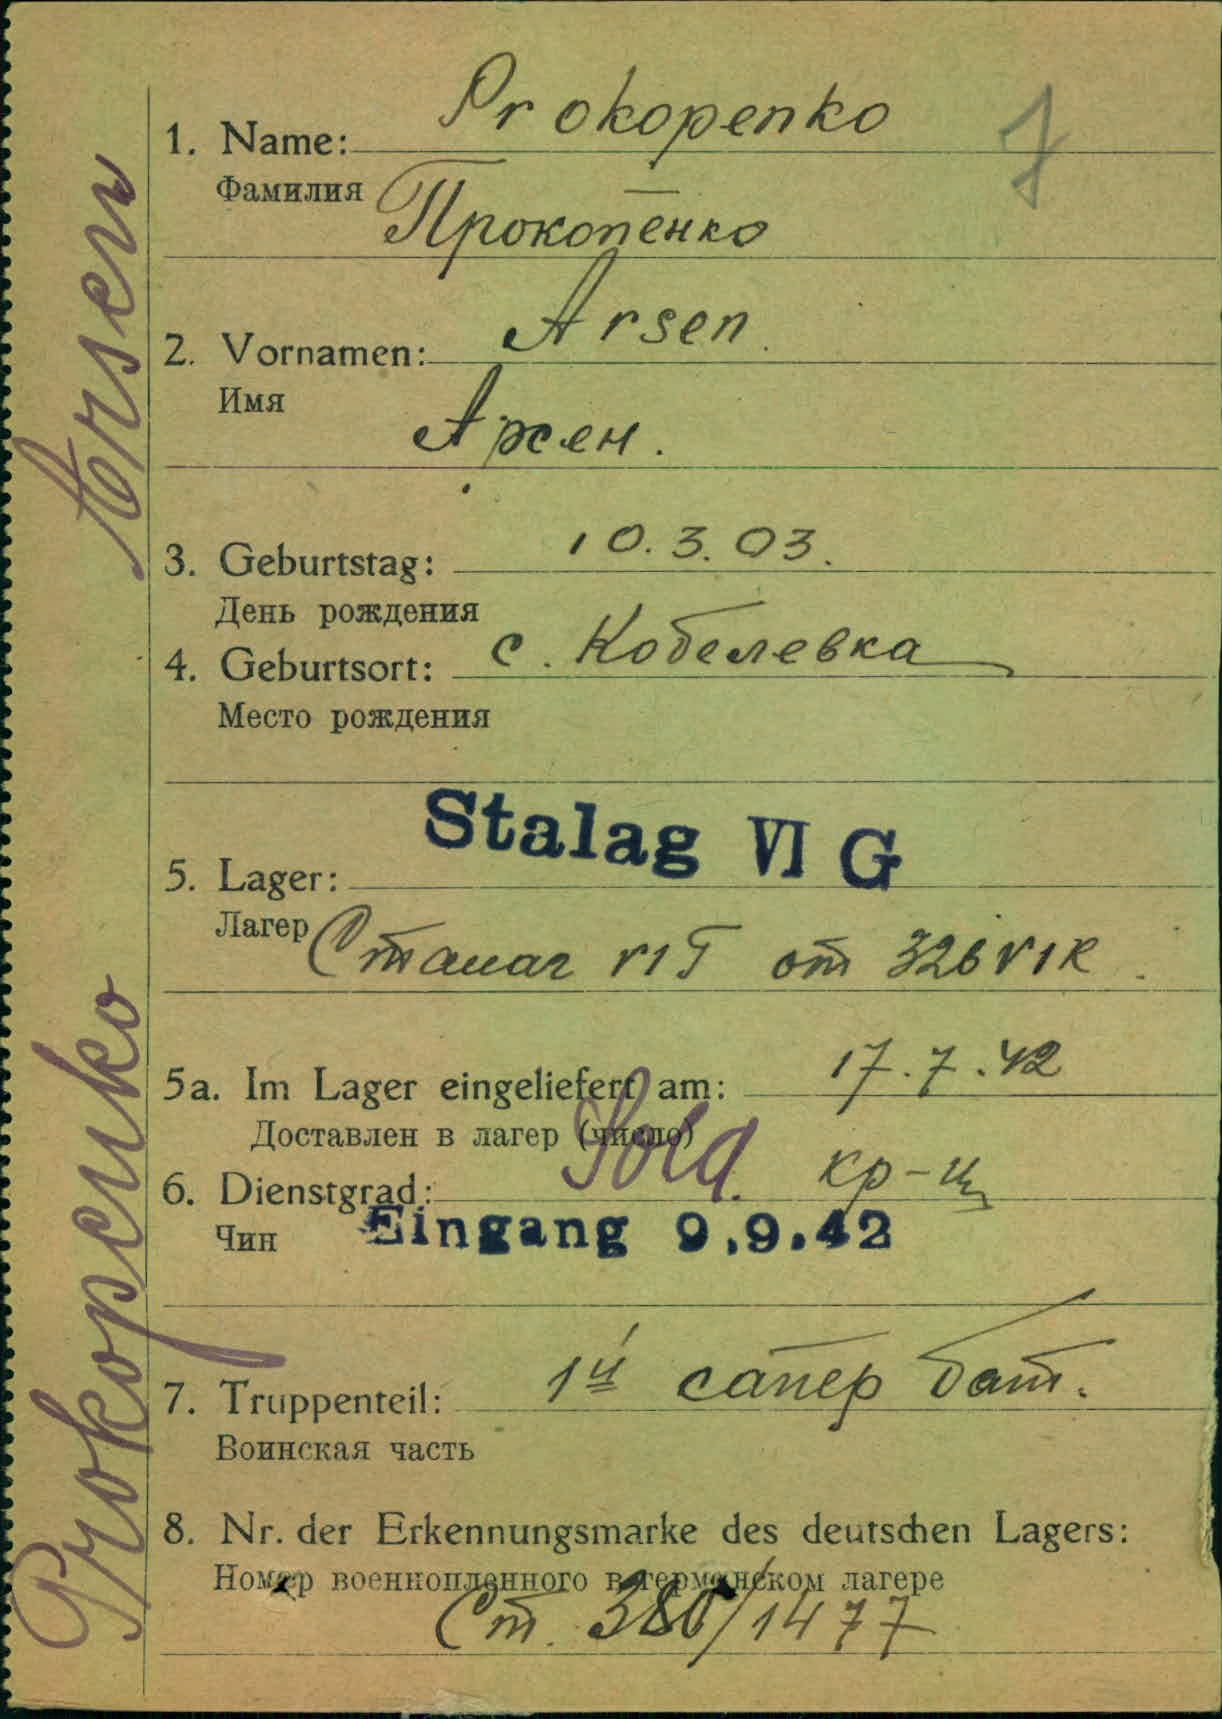 Prokopenko Arsen
Prokopenko
1. Name:
Фамилия
Прокопенко
Arsen
2. Vornamen:
Имя
Арсен.
3. Geburtstag: 10.3.03.
День рождения
4. Geburtsort: с. Кобелевка
Место рождения
Stalag VI G
5. Lager:
Лагер Сталаг VI Г от 326 VI К.
5a. Im Lager eingeliefert am: 17.7.42
Доставлен в лагер (число)
6. Dienstgrad: Sold. кр-ц
Чин Eingang 9.9.42
7. Truppenteil: 1й сапер бат.
Воинская часть
8. Nr. der Erkennungsmarke des deutschen Lagers:
Номер военнопленного в германском лагере
Ст. /1477